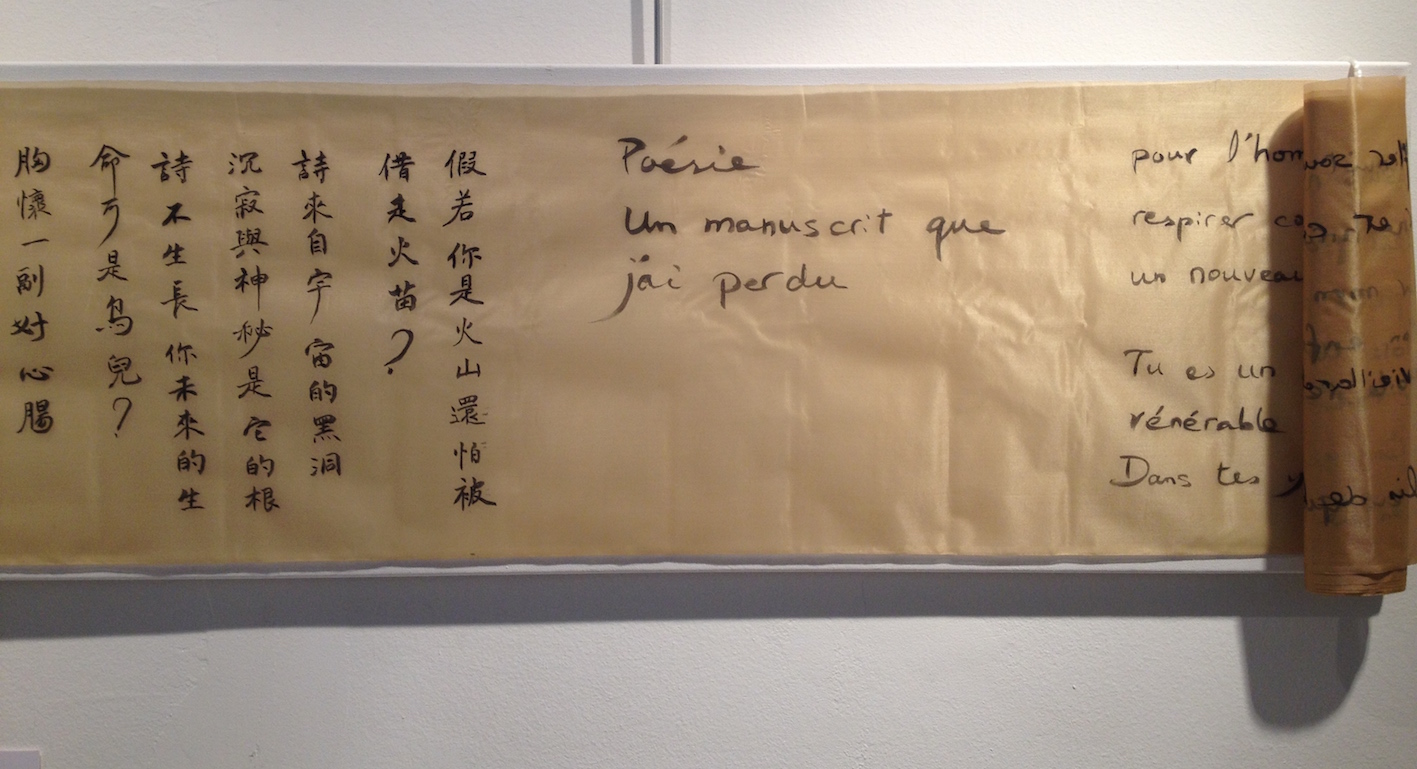 假若你是火山還怕被
借走火苗？
詩來自宇宙的黑洞
沉寂與神秘是它的根
詩不生長你未來的生
命可是鳥兒？
胸懷一副好心腸
Poésie
Un manuscrit que
j'ai perdu
pour l'hom
respirer co
un nouveau
Tu es un
vénérable
Dans tes y